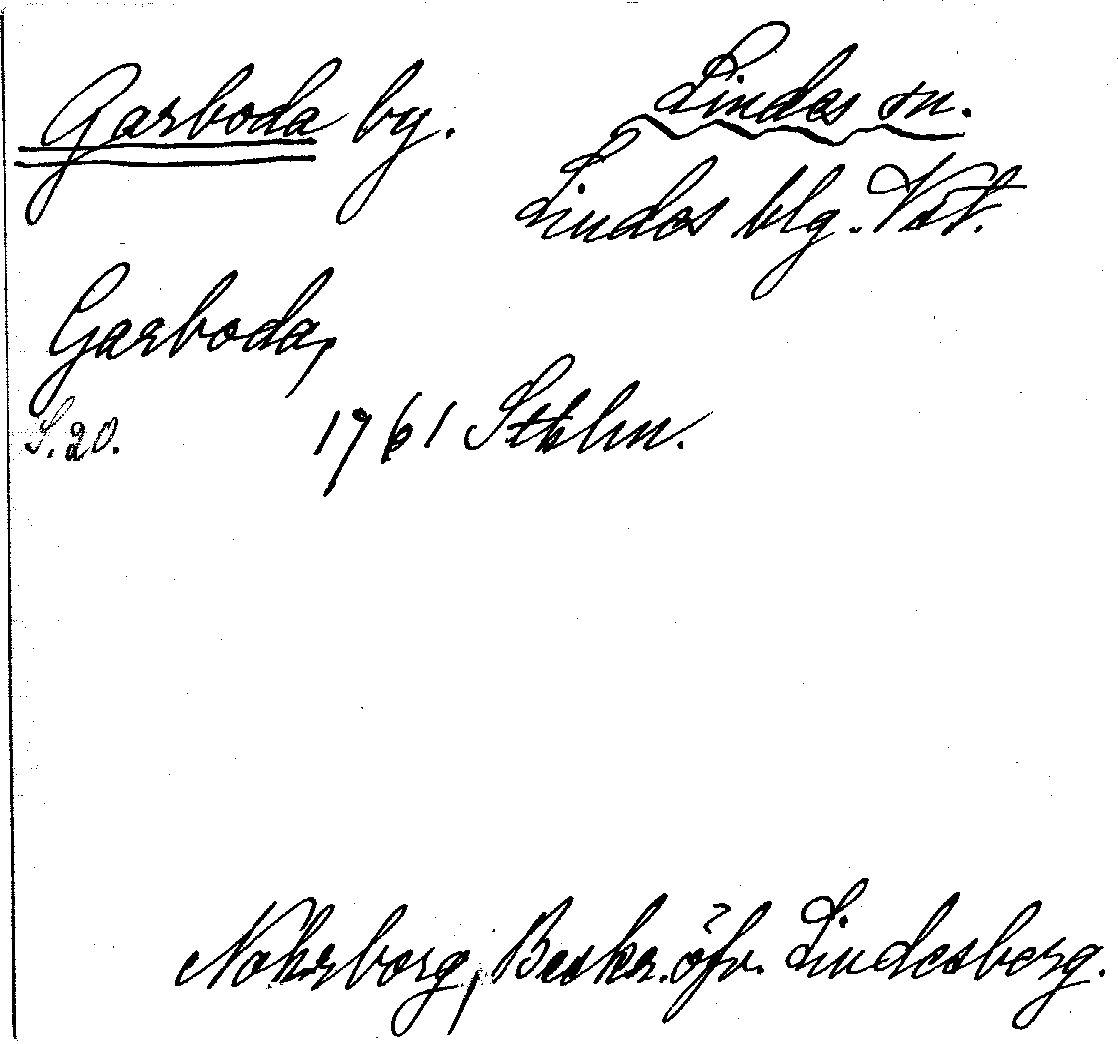 Garboda by. Lindes sn.
Lindes blg. Vstm.
Garboda,
S. 20. 1761 Sthlm.
Nohrborg, Beskr. öfv. Lindesberg.